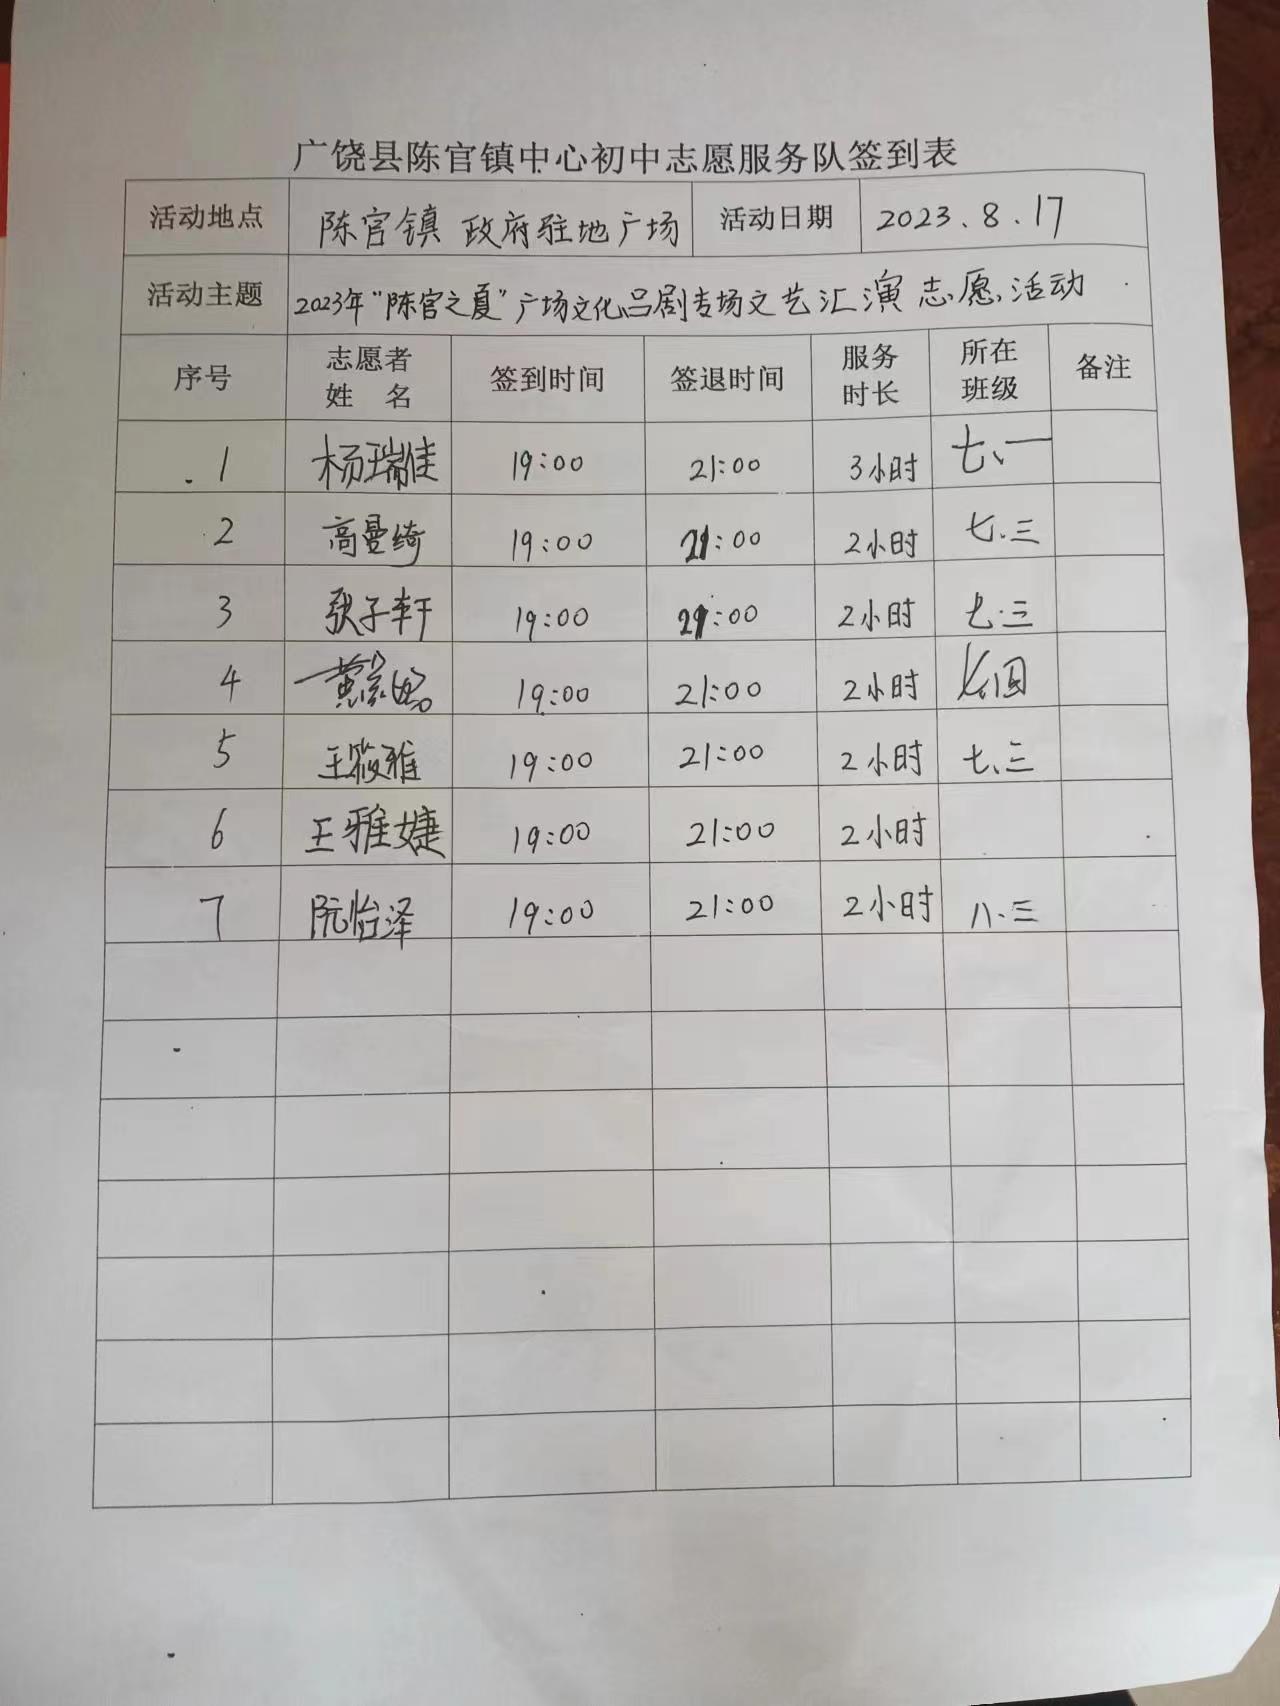 广饶县陈官镇中心初中志愿服务队签到表
活动地点 陈官镇 政府驻地广场 活动日期 2023.8.17
活动主题 2023年“陈官之夏”广场文化吕剧专场文艺汇演志愿活动
序号 志愿者姓名 签到时间 签退时间 服务时长 所在班级 备注
1 杨瑞佳 19:00 21:00 3小时 七、一
2 高曼绮 19:00 21:00 2小时 七.三
3 张子轩 19:00 21:00 2小时 七.三
4 黄 19:00 21:00 2小时 七.四
5 王筱雅 19:00 21:00 2小时 七、三
6 王雅婕 19:00 21:00 2小时
7 阮怡泽 19:00 21:00 2小时 八.三